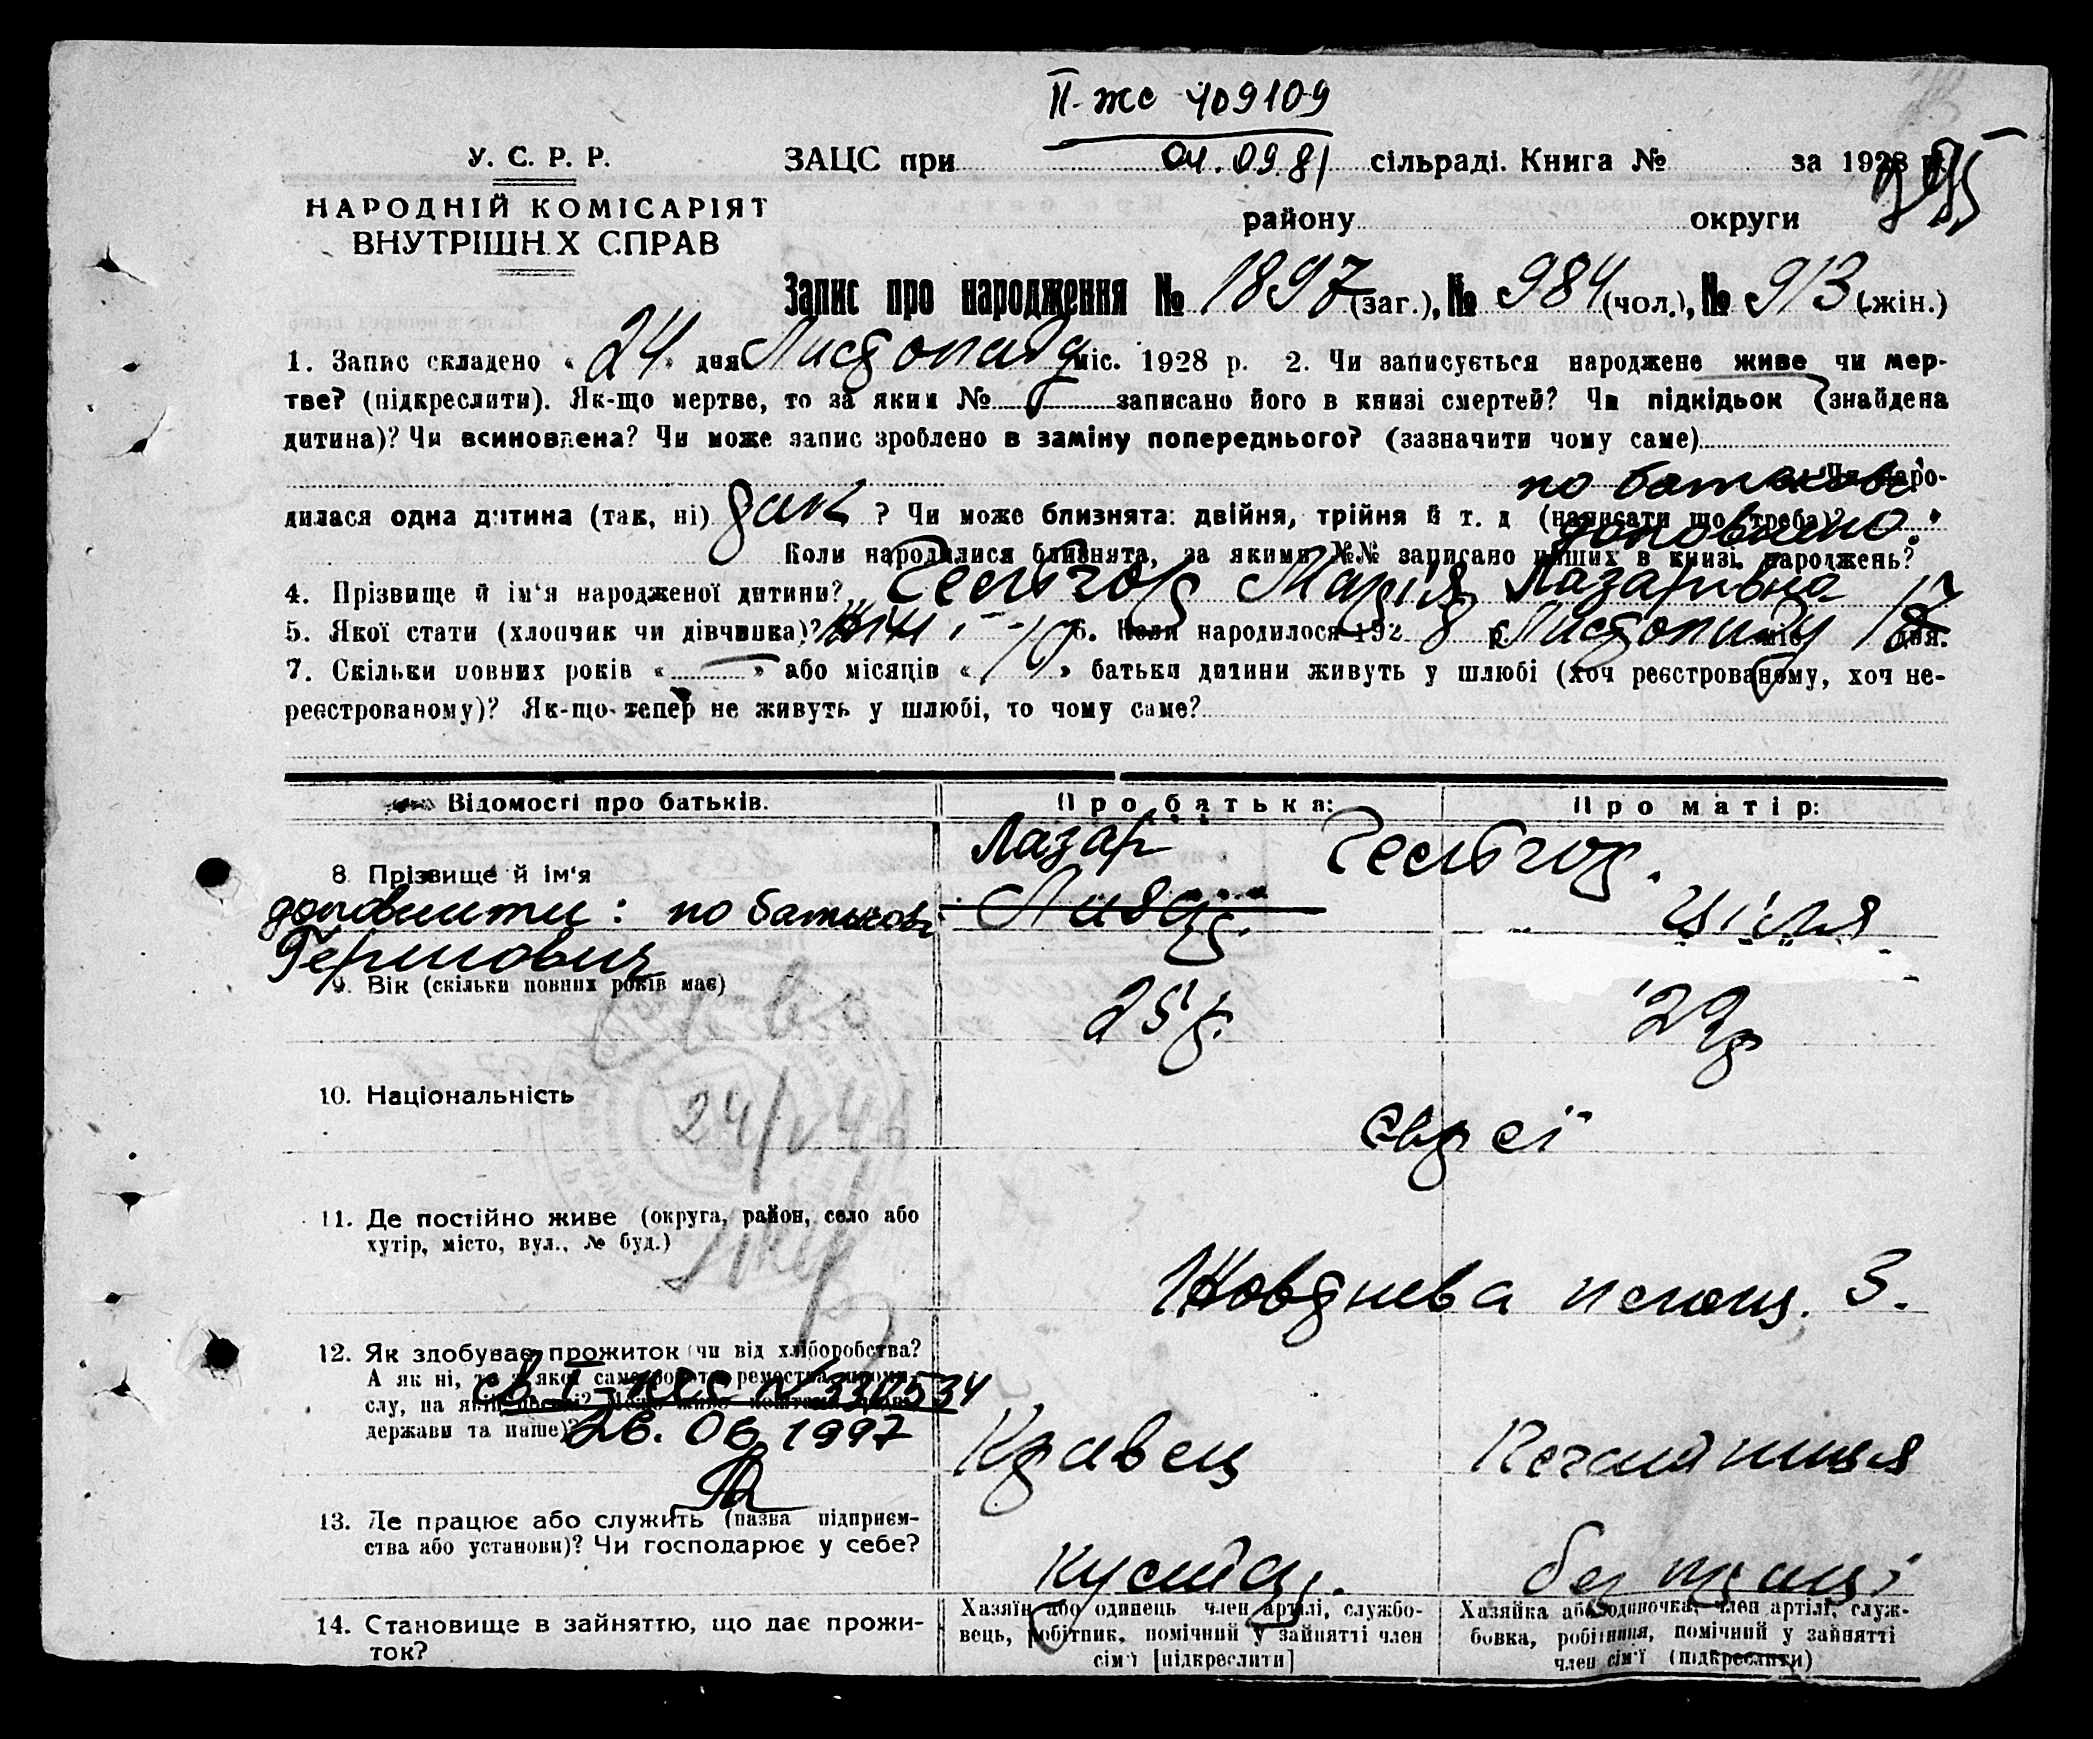 ІІ-жс 409109
У. С. Р. Р.
ЗАЦС при 04.09.81 сільраді. Книга № за 1928 р.
НАРОДНІЙ КОМІСАРІЯТ
ВНУТРІШН Х СПРАВ
району округи
Запис про народження № 1897 (заг.), № 984 (чол.), № 913 (жін.)
1. Запис складено « 24 » дня Листопада міс. 1928 р. 2. Чи записується народжене живе чи мер-
тве? (підкреслити). Як-що мертве, то за яким № записано його в книзі смертей? Чи підкідьок (знайдена
дитина)? Чи всиновлена? Чи може запис зроблено в заміну попереднього? (зазначити чому саме)
по батькові Чи наро-
дилася одна дитина (так, ні) так ? Чи може близнята: двійня, трійня й т. д (написати що треба)?
доповнено.
Коли народилися близнята, за якими №№ записано инших в книзі народжень?
4. Прізвище й ім'я народженої дитини? Гельгор Марія Лазарівна
5. Якої стати (хлопчик чи дівчинка)? жін. 6. Коли народилося 192 8 р. Листопаду міс. дня.
7. Скільки повних років « » або місяців « 10 » батьки дитини живуть у шлюбі (хоч реєстрованому, хоч не-
реєстрованому)? Як-що тепер не живуть у шлюбі, то чому саме?
Відомості про батьків. Про батька: Про матір:
Лазар Гельгор.
8. Прізвище й ім'я
доповнити: по батькові Лизар. Циля
Гершович
9. Вік (скільки повних років має) 25 р. 29 р
10. Національність євреї
24/V 46
11. Де постійно живе (округа, район, село або
хутір, місто, вул., № буд.)
Жовднева площ. 3.
12. Як здобуває прожиток чи від хліборобства?
А як ні, то з якої саме роботи, ремества, промислу,
на якій посаді?
держави та инше)?
26.06.1997
Кравец
13. Де працює або служить (назва підприєм-
ства або установи)? Чи господарює у себе?
кустар. без праці
14. Становище в зайняттю, що дає прожи-
ток?
Хазяїн або одинець член артілі, службо-
вець, робітник, помічний у зайнятті член
сім'ї [підкреслити]
Хазяйка або одиночка, член артілі, служ-
бовка, робітниця, помічний у зайнятті
член сім'ї (підкреслити)